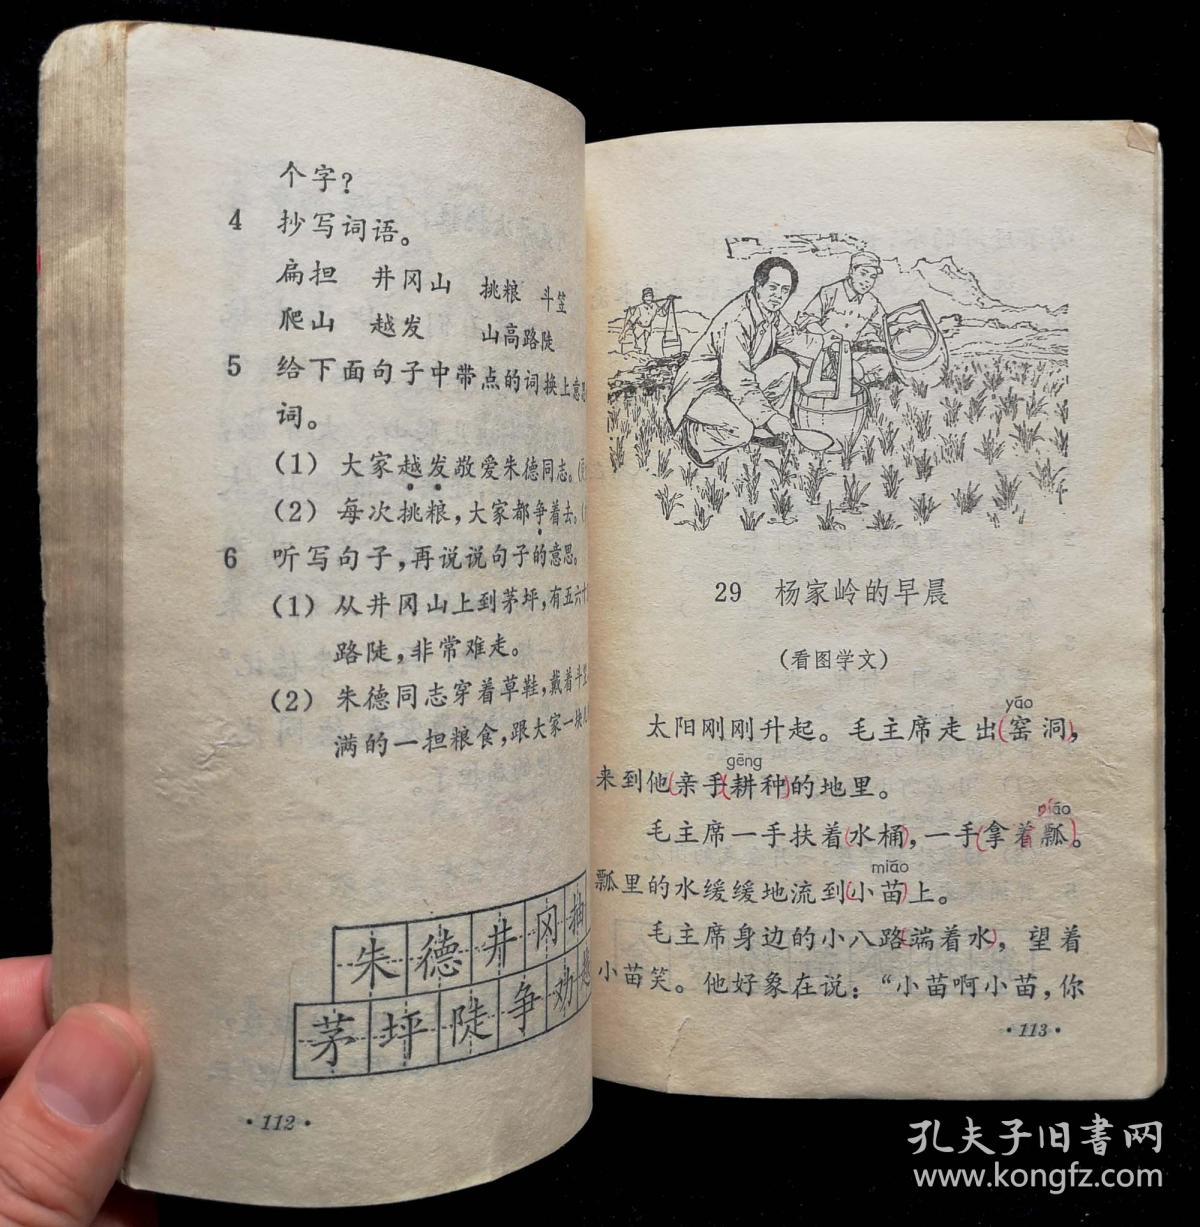 个字？
4 抄写词语。
扁担 井冈山 挑粮 斗笠
爬山 越发 山高路陡
5 给下面句子中带点的词换上意
词。
(1) 大家越发敬爱朱德同志。(
(2) 每次挑粮，大家都争着去。(
6 听写句子，再说说句子的意思。
(1) 从井冈山上到茅坪，有五六十
路陡，非常难走。
(2) 朱德同志穿着草鞋，戴着斗笠
满的一担粮食，跟大家一块儿
朱德井冈
茅坪陡争劝
·112·
29 杨家岭的早晨
(看图学文)
yáo
太阳刚刚升起。毛主席走出(窑洞)，
gēng
来到他(亲手)(耕种)的地里。
piáo
毛主席一手扶着(水桶)，一手(拿着瓢)。
miáo
瓢里的水缓缓地流到(小苗)上。
毛主席身边的小八路(端着水)，望着
小苗笑。他好象在说：“小苗啊小苗，你
·113·
孔夫子旧书网
www.kongfz.com